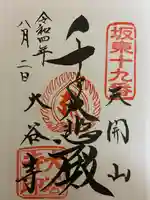 坂東十九番
天開山
千手大悲殿
大谷寺
令和四年
八月二日